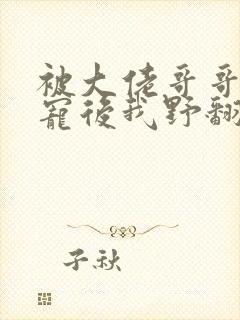 被大佬哥哥
寵後我野翻
子秋